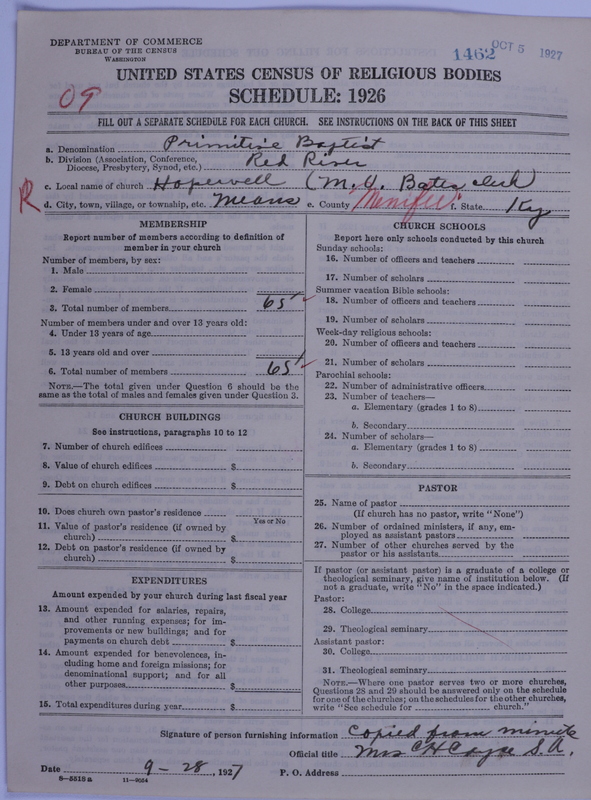 DEPARTMENT OF COMMERCE
BUREAU OF THE CENSUS
WASHINGTON
1462 OCT 5 1927
UNITED STATES CENSUS OF RELIGIOUS BODIES
SCHEDULE: 1926
09
FILL OUT A SEPARATE SCHEDULE FOR EACH CHURCH. SEE INSTRUCTIONS ON THE BACK OF THIS SHEET
a. Denomination Primitive Baptist
b. Division (Association, Conference, Diocese, Presbytery, Synod, etc.) Red River
c. Local name of church Hopewell (M. V. Bates clerk)
R d. City, town, village, or township, etc. Means e. County Menifee f. State Ky
MEMBERSHIP
Report number of members according to definition of member in your church
Number of members, by sex:
1. Male
2. Female
3. Total number of members 65
Number of members under and over 13 years old:
4. Under 13 years of age
5. 13 years old and over
6. Total number of members 65
NOTE.—The total given under Question 6 should be the same as the total of males and females given under Question 3.
CHURCH BUILDINGS
See instructions, paragraphs 10 to 12
7. Number of church edifices
8. Value of church edifices $
9. Debt on church edifices $
10. Does church own pastor's residence
Yes or No
11. Value of pastor's residence (if owned by church) $
12. Debt on pastor's residence (if owned by church) $
EXPENDITURES
Amount expended by your church during last fiscal year
13. Amount expended for salaries, repairs, and other running expenses; for improvements or new buildings; and for payments on church debt $
14. Amount expended for benevolences, including home and foreign missions; for denominational support; and for all other purposes $
15. Total expenditures during year $
CHURCH SCHOOLS
Report here only schools conducted by this church
Sunday schools:
16. Number of officers and teachers
17. Number of scholars
Summer vacation Bible schools:
18. Number of officers and teachers
19. Number of scholars
Week-day religious schools:
20. Number of officers and teachers
21. Number of scholars
Parochial schools:
22. Number of administrative officers
23. Number of teachers—
a. Elementary (grades 1 to 8)
b. Secondary
24. Number of scholars—
a. Elementary (grades 1 to 8)
b. Secondary
PASTOR
25. Name of pastor
(If church has no pastor, write "None")
26. Number of ordained ministers, if any, employed as assistant pastors
27. Number of other churches served by the pastor or his assistants
If pastor (or assistant pastor) is a graduate of a college or theological seminary, give name of institution below. (If not a graduate, write "No" in the space indicated.)
Pastor:
28. College
29. Theological seminary
Assistant pastor:
30. College
31. Theological seminary
NOTE.—Where one pastor serves two or more churches, Questions 28 and 29 should be answered only on the schedule for one of the churches; on the schedules for the other churches, write "See schedule for church."
Signature of person furnishing information Copied from minute
Official title Mrs C H S. A.
Date 9-28, 1927 P. O. Address
8—5518 a 11—9054